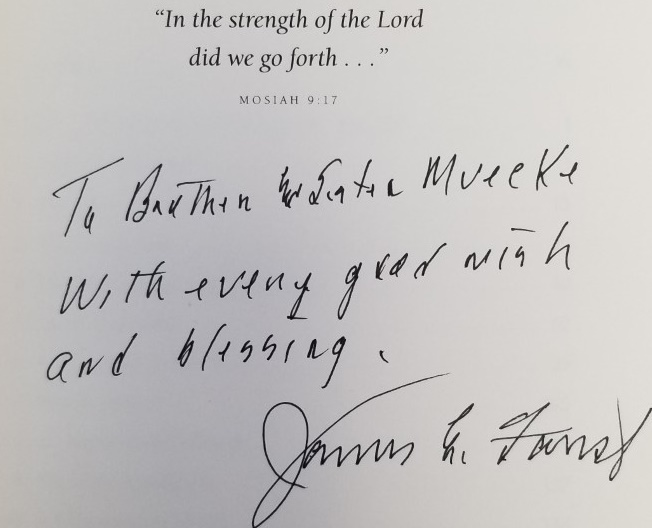 “In the strength of the Lord
did we go forth . . .”
MOSIAH 9:17
To Brother & Sister Muecke
With every good wish
and blessing.
James E. Faust